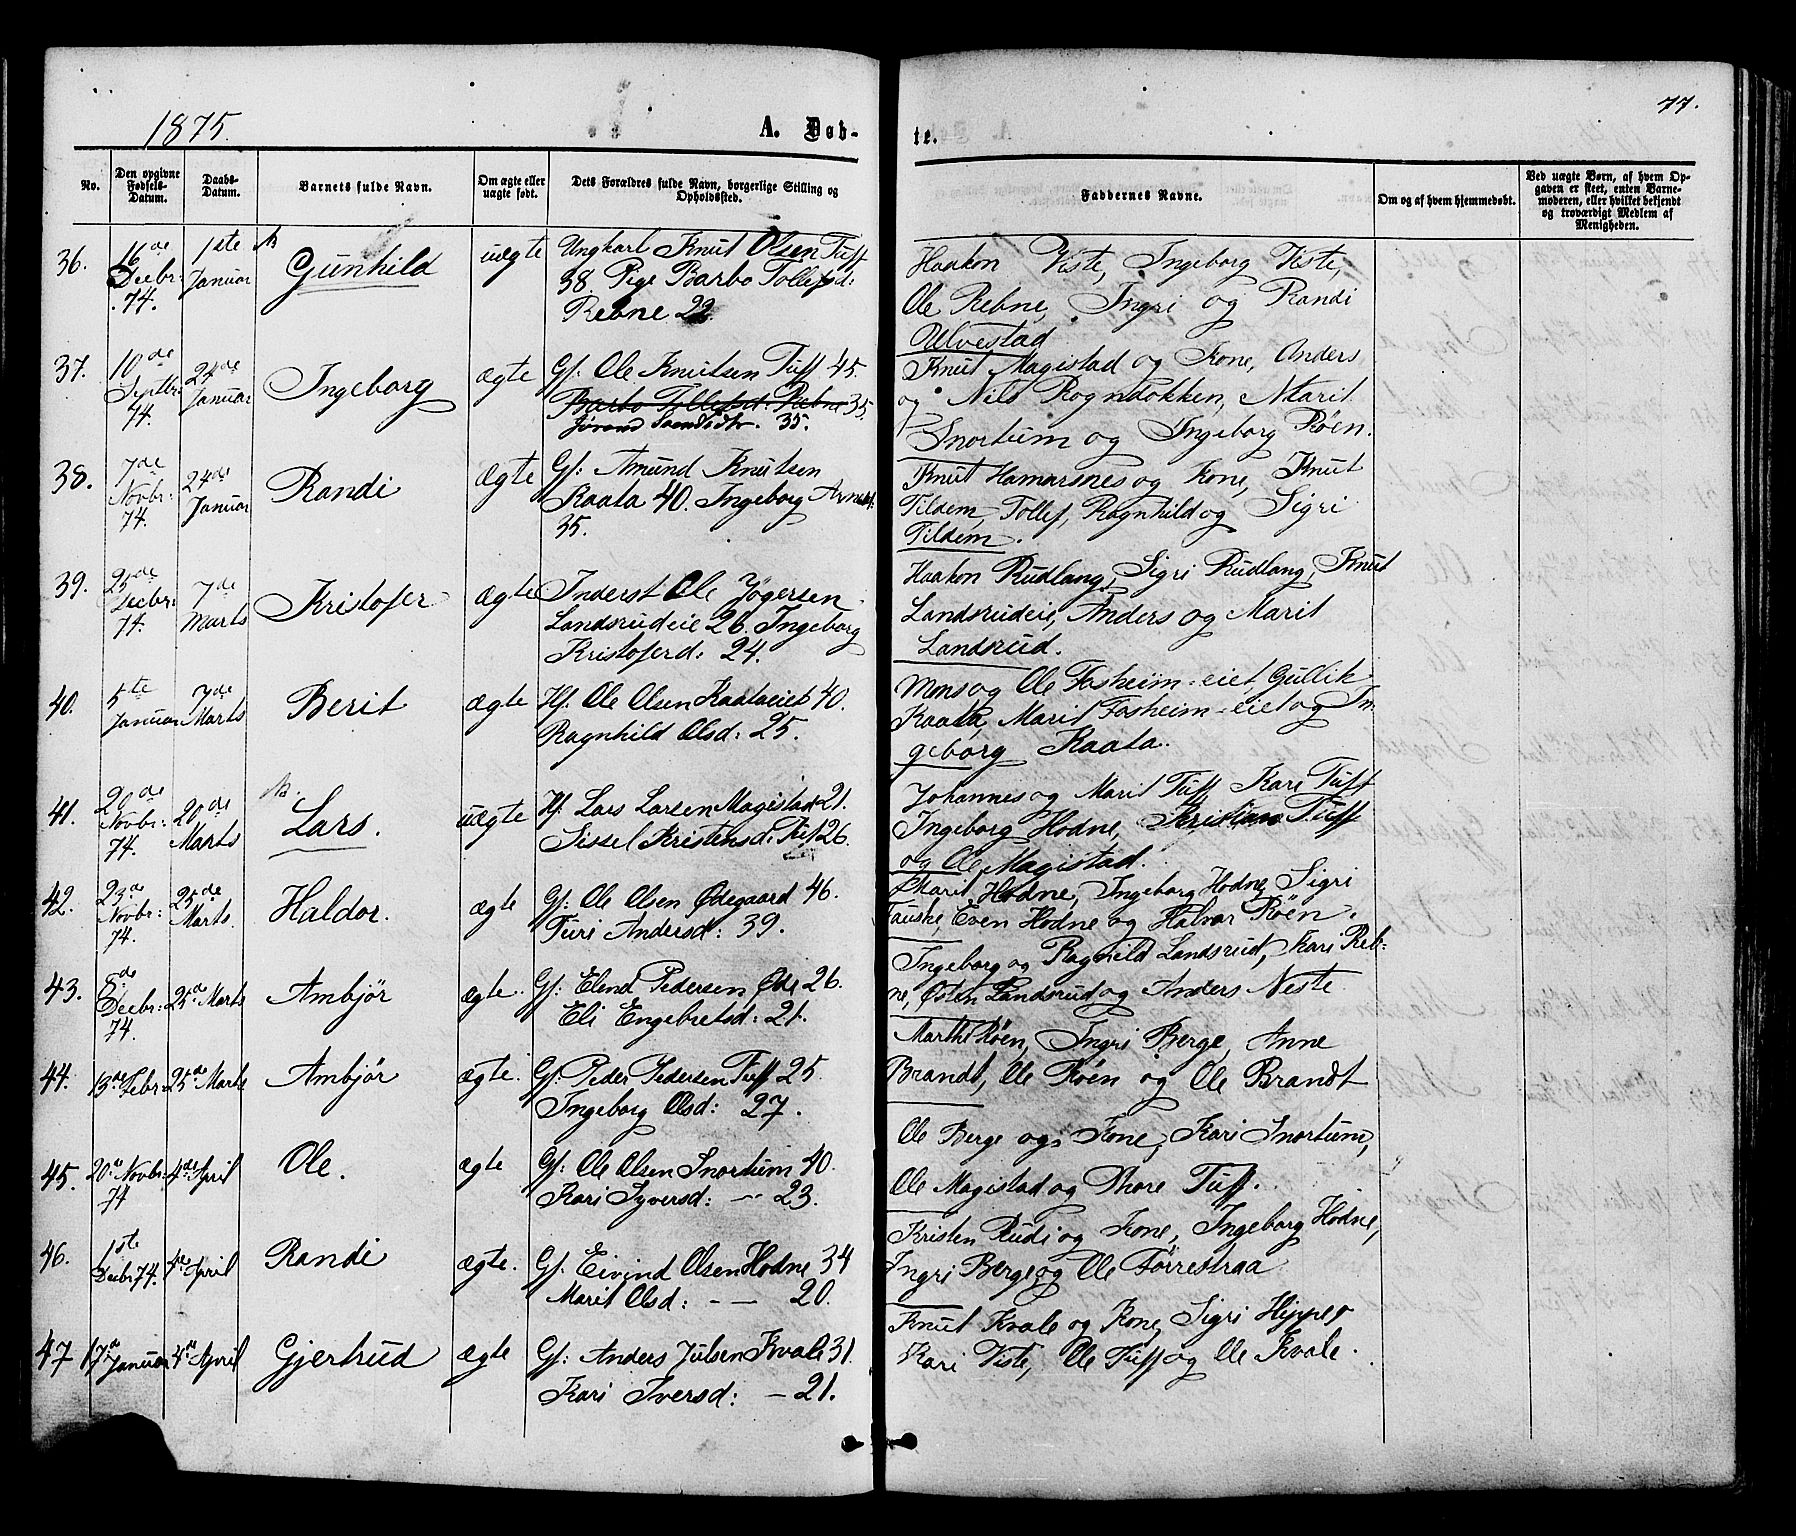 1875.
A. Døb-
te.
77.
No.
Den opgivne Fødsels-Datum.
Daabs-Datum.
Barnets fulde Navn.
Om ægte eller uægte født.
Dets Forældres fulde Navn, borgerlige Stilling og Opholdssted.
Faddernes Navne.
Om og af hvem hjemmedøbt.
Ved uægte Børn, af hvem Op-
gaven er skeet, enten Barne-
moderen, eller hvilket bekjendt
og troværdigt Medlem af
Menigheden.
36. 16de Decbr: 74. 1ste Januar Gunhild uægte
Ungkarl Knut Olsen Tuff
38. Pige Barbo Tollefsd:
Rebne 22.
Haakon Viste, Ingeborg Viste,
Ole Rebne, Ingri og Randi
Ulvestad
37. 10de Septbr 74. 24de Januar Ingeborg ægte
Gf: Ole Knutsen Tuff 45.
Barbo Tollefsd: Rebne 35.
Jørand Svendsdtr. 35.
Knut Magistad og Kone, Anders
og Nils Rogndokken, Marit
Snortum og Ingeborg Røen.
38. 7de Novbr: 74. 24de Januar Randi ægte
Gf: Amund Knutsen
Kaata 40. Ingeborg Arnesd:
35.
Knut Hamarsnes og Kone, Knut
Tildem, Tollef, Ragnhild og Sigri
Tildem.
39. 25de Decbr: 74. 7de Marts Kristofer ægte
Inderst Ole Jøgersen
Landsrudeie 26. Ingeborg
Kristoferd: 24.
Haakon Rudlang, Sigri Rudlang, Knut
Landsrudeie, Anders og Marit
Landsrud.
40. 5te Januar 7de Marts Berit ægte
Hf. Ole Olsen Kaataeiet 40.
Ragnhild Olsd: 25.
Mons og Ole Fosheim-eiet Gullik
Kaata, Marit Fosheim-eiet og In
geborg Kaata.
41. 20de Novbr: 74. 20de Marts Lars. uægte
Hf. Lars Larsen Magistad 21.
Sissel Kristensd: Tuf 26.
Johannes og Marit Tuff Kari Tuff
Ingeborg Hodne, Kristian Tuff
og Ole Magistad.
42. 23de Novbr: 74. 25de Marts Haldor. ægte
Gf: Ole Olsen Ødegaard 46.
Turi Andersd: 39.
Marit Hodne, Ingeborg Hodne, Sigri
Fauske, Even Hodne og Halvor Røen.
43. 8de Decbr: 74 25de Marts Ambjør ægte.
Gf: Elend Pedersen Øde 26.
Eli Engebretsd: 21.
Ingeborg og Ragnild Landsrud, Kari Reb-
ne, Østen Landsrud og Anders Neste
44. 13de Febr: 25de Marts Ambjør ægte.
Gf: Peder Pedersen Tuff 25.
Ingeborg Olsd: 27.
Marthe Røen, Ingri Berge, Anne
Brandt, Ole Røen og Ole Brandt
45. 20de Novbr: 74 4de April Ole. ægte
Gf: Ole Olsen Snortum 40.
Kari Syversd: — 23.
Ole Berge og Kone, Kari Snortum,
Ole Magistad og Thore Tuff.
46. 1ste Decbr 74. 4de April Randi ægte.
Gf. Eivind Olsen Hodne 34
Marit Olsd: — — 20.
Kristen Rudi og Kone, Ingeborg Hodne,
Ingri Berge og Ole Førrestraa
47 17de Januar 4de April Gjertrud ægte
Gf: Anders Julsen Kvale 31.
Kari Iversd: — 21.
Knut Kvale og Kone, Sigri
Kari Viste, Ole Tuff og Ole Kvale.